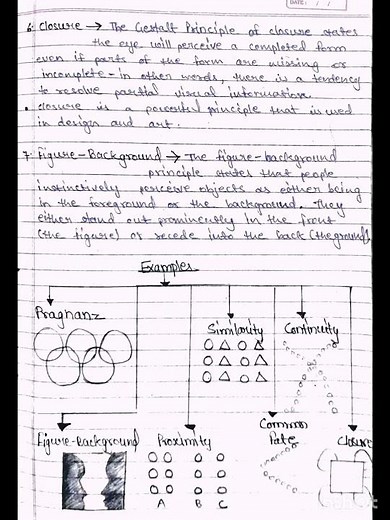 DATE: / /
6. Closure → The Gestalt Principle of closure states
the eye will perceive a completed form
even if parts of the form are missing or
incomplete - in other words, there is a tendency
to resolve partial visual information.
• closure is a powerful principle that is used
in design and art.
7. Figure-Background → The figure-background
principle states that people
instinctively perceive objects as either being
in the foreground or the background. They
either stand out prominently in the front
(the figure) or recede into the back (the ground)
Examples
Pragnanz
Similarity Continuity
Figure-Background Proximity Common Fate Closure
A B C